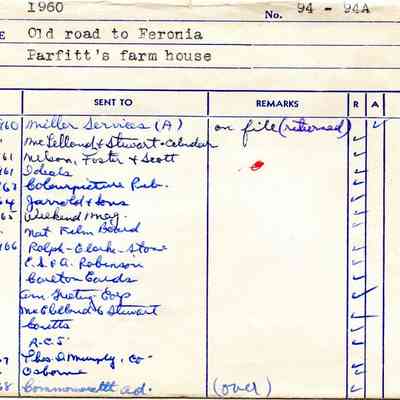 1960
No. 94 - 94A
E Old road to Feronia
Parfitt's farm house
SENT TO REMARKS R A
960 Miller Services (A) on file (returned)
" McClelland & Stewart - Calendar
61 Nelson, Foster & Scott
961 Ideals
63 Colourpicture Pub.
64 Jarrold & Sons
65 Weekend Mag.
Nat Film Board
66 Rolph-Clarke-Stone
E.S. & A. Robinson
Carlton Cards
Am. Greeting Corp
McClelland & Stewart
Coutts
A.C.S.
7 Thos. D. Murphy, Co
" Osborne
68 Commonwealth ad. (over)